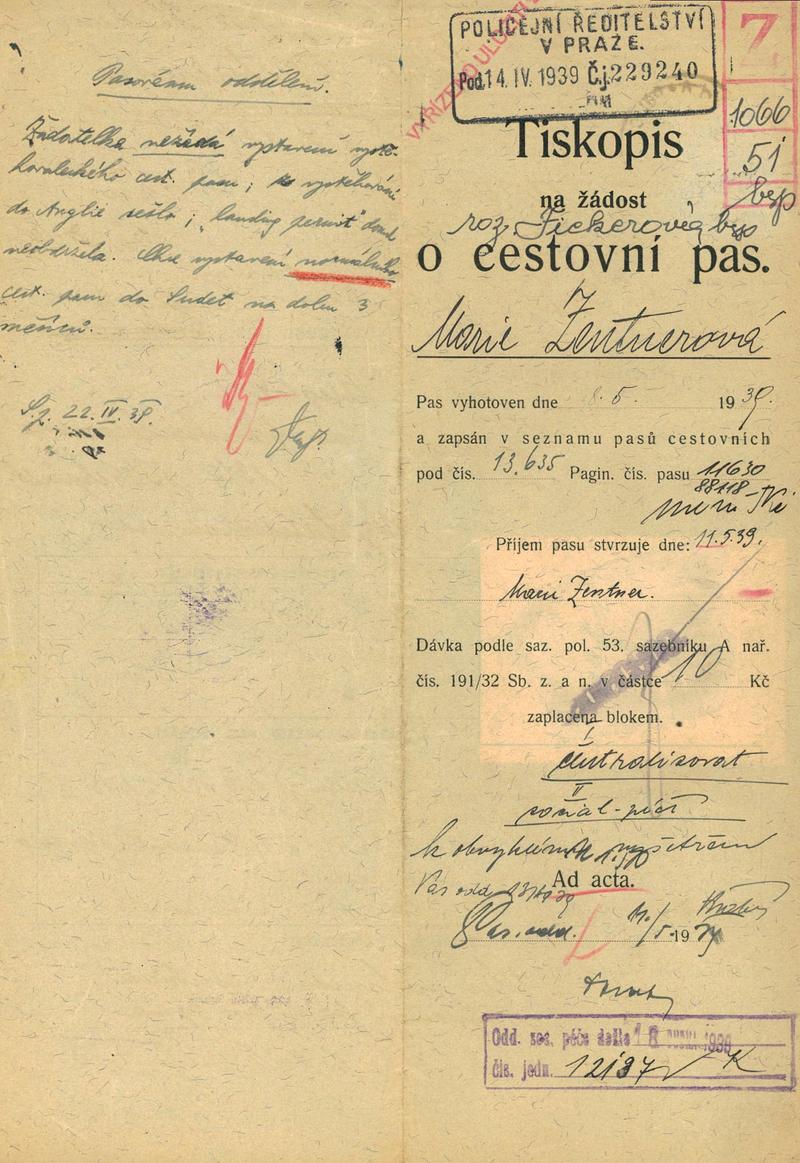 Pasovému oddělení.
Žadatelka nežádá vystavení vystě-
hovaleckého cest. pasu; vystěhování
do Anglie sešlo; „landing permit" dosud
neobdržela. Chce vystavení normálního
cest. pasu do Sudet na dobu 3
měsíců.
22. IV. 39.
POLICEJNÍ ŘEDITELSTVÍ
V PRAZE.
Pod. 14. IV. 1939 Čj. 229240
Z
1066
51
byp
Tiskopis
na žádost
roz. Fickerová byp
o cestovní pas.
Marie Zentnerová
Pas vyhotoven dne 8. 5. 1939.
a zapsán v seznamu pasů cestovních
pod čís. 13.635 Pagin. čís. pasu 11630
88118
Příjem pasu stvrzuje dne: 11.5.39.
Marie Zentner.
Dávka podle saz. pol. 53. sazebníku A nař.
čís. 191/32 Sb. z. a n. v částce 10 Kč
zaplacena blokem.
I
centralisovat
II
sociál-péči
k obvyklému vyšetření
Pas. odd.
Ad acta.
Pas. odd. 11/5 1939
Odd. soc. péče došlo 16 1939
čís. jedn. 12137 K